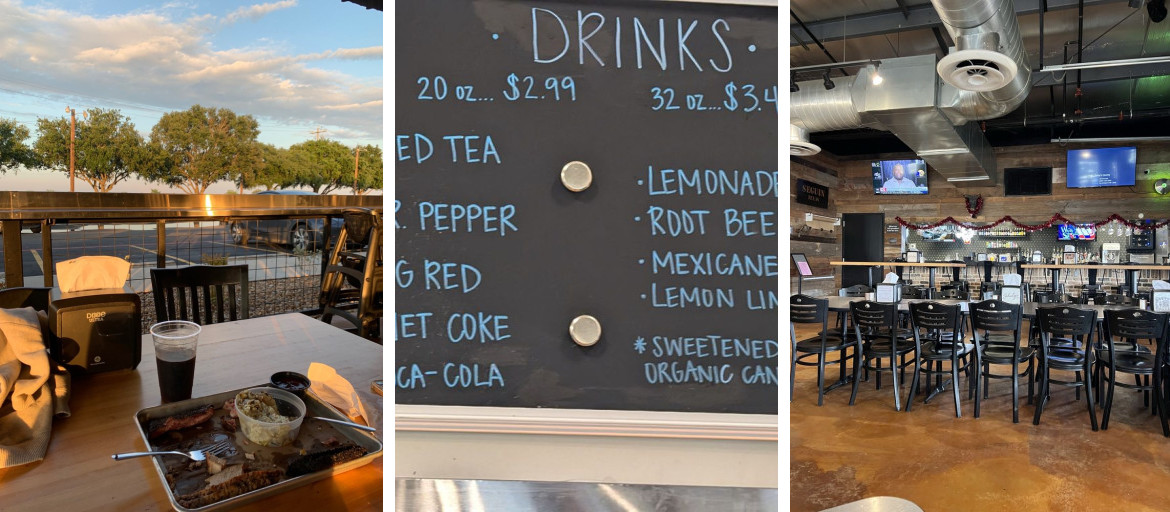 • DRINKS •
20 oz... $2.99
32 oz...$3.4
ED TEA
R. PEPPER
G RED
IET COKE
CA-COLA
• LEMONADE
• ROOT BEE
• MEXICANE
• LEMON LIM
* SWEETENED
ORGANIC CAN
SEGUIN